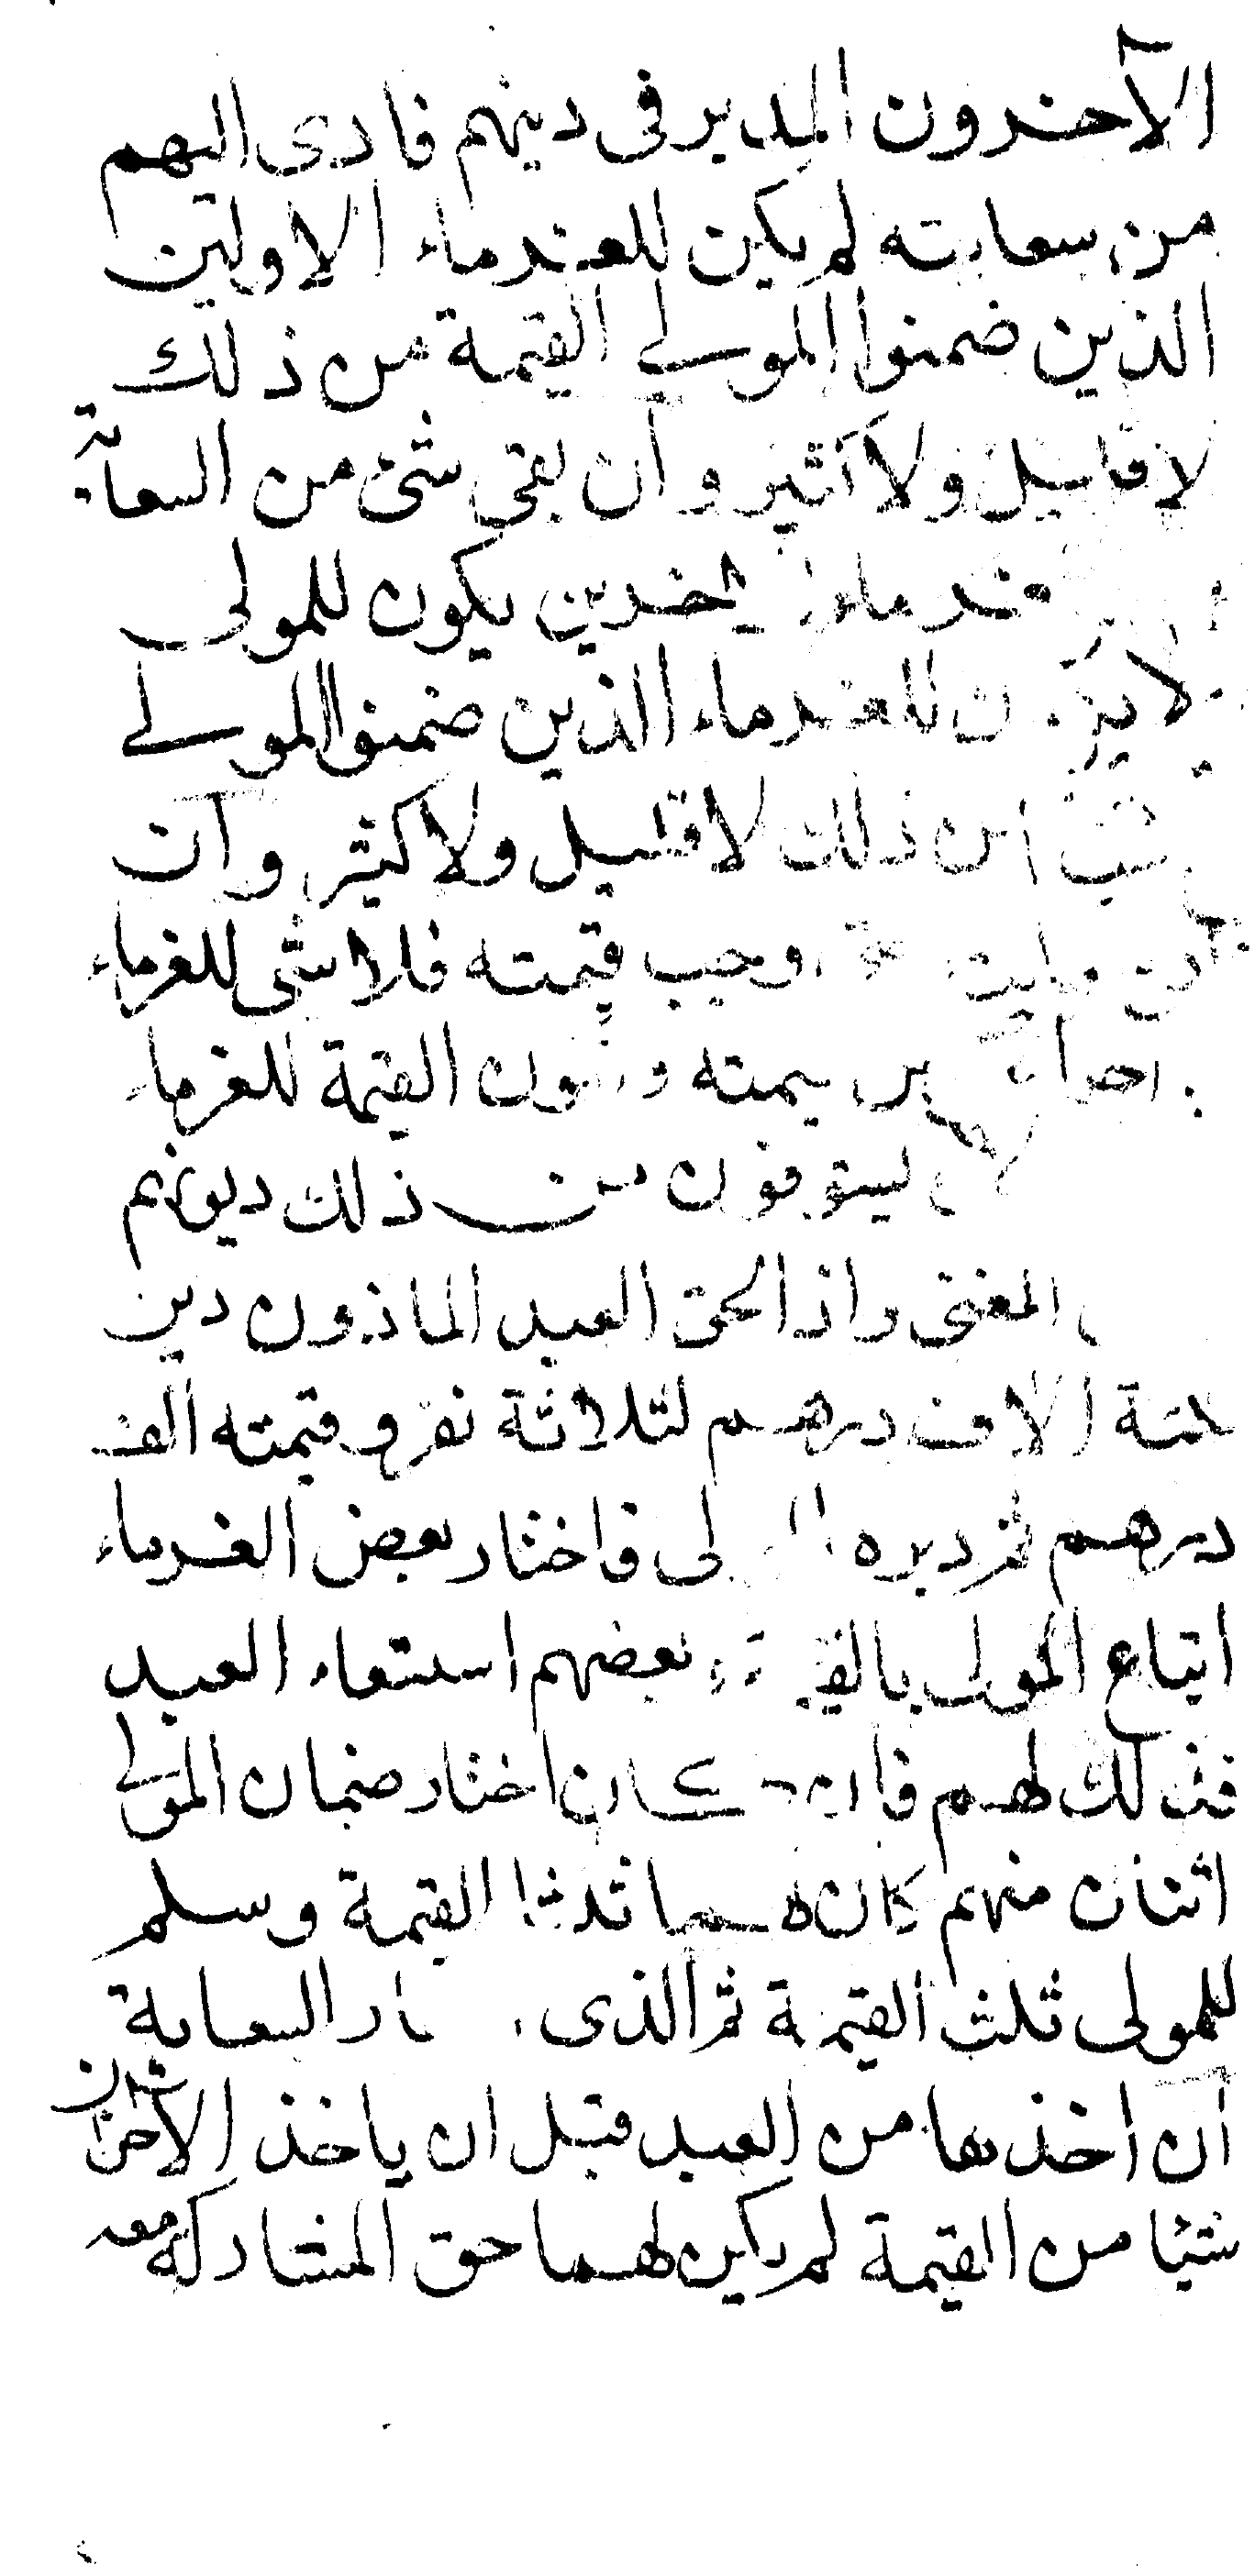 الآخرون المدبر في دينهم فادى اليهم
من سعايته لم يكن للغرماء الاولين
الذين ضمنوا المولى القيمة من ذلك
لا قليل ولا كثير وان بقى شئ من السعاية
يكون للمولى
للغرماء الذين ضمنوا المولى
من ذلك لا قليل ولا كثير وان
وجب قيمته فلا شى للغرماء
القيمة للغرماء
يستوفون من ذلك ديونهم
المغنى واذا لحق العبد الماذون دين
ثلثة الاف درهم لثلاثة نفر وقيمته الف
درهم ثم دبره فاختار بعض الغرماء
اتباع المولى بعضهم استسعاء العبد
فذلك لهم فان كان اختار ضمان المولى
اثنان منهم كان لهما ثلثا القيمة وسلم
للمولى ثلث القيمة ثم الذى السعاية
ان اخذها من العبد قبل ان ياخذ الاخران
شيئا من القيمة لم يكن لهما حق المشاركة معه